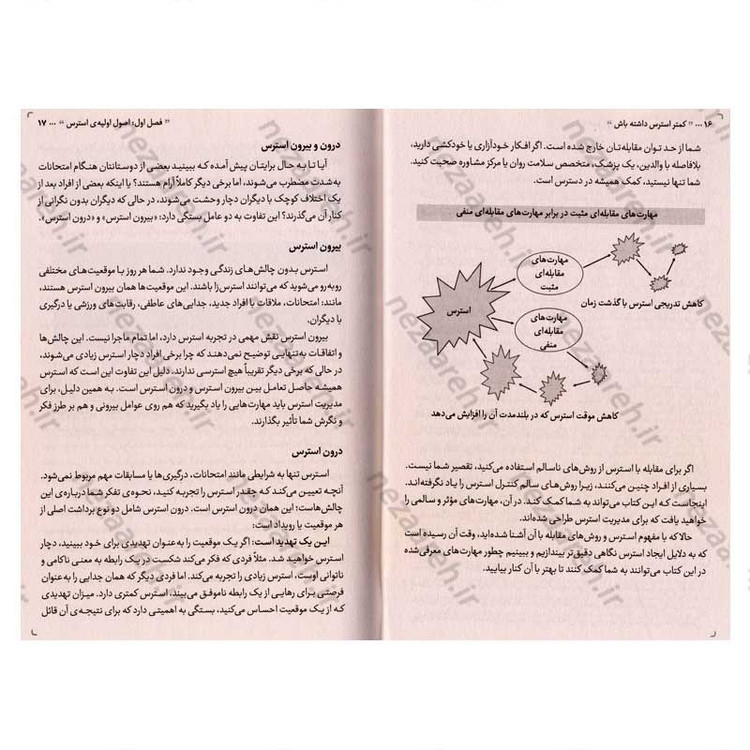 ۱۶ ... " کمتر استرس داشته باش "
شما از حد توان مقابله‌تان خارج شده است. اگر افکار خودآزاری یا خودکشی دارید،
بلافاصله با والدین، یک پزشک، متخصص سلامت روان یا مرکز مشاوره صحبت کنید.
شما تنها نیستید، کمک همیشه در دسترس است.
مهارت‌های مقابله‌ای مثبت در برابر مهارت‌های مقابله‌ای منفی
استرس
مهارت‌های
مقابله‌ای
مثبت
کاهش تدریجی استرس با گذشت زمان
مهارت‌های
مقابله‌ای
منفی
کاهش موقت استرس که در بلندمدت آن را افزایش می‌دهد
اگر برای مقابله با استرس از روش‌های ناسالم استفاده می‌کنید، تقصیر شما نیست.
بسیاری از افراد چنین می‌کنند، زیرا روش‌های سالم کنترل استرس را یاد نگرفته‌اند.
اینجاست که این کتاب می‌تواند به شما کمک کند. در آن، مهارت‌های مؤثر و سالمی را
خواهید یافت که برای مدیریت استرس طراحی شده‌اند.
حالا که با مفهوم استرس و روش‌های مقابله با آن آشنا شده‌اید، وقت آن رسیده است
که به دلایل ایجاد استرس نگاهی دقیق‌تر بیندازیم و ببینیم چطور مهارت‌های معرفی‌شده
در این کتاب می‌توانند به شما کمک کنند تا بهتر با آن کنار بیایید.
" فصل اول؛ اصول اولیه‌ی استرس " ... ۱۷
درون و بیرون استرس
آیا تا به حال برایتان پیش آمده که ببینید بعضی از دوستانتان هنگام امتحانات
به‌شدت مضطرب می‌شوند، اما برخی دیگر کاملاً آرام هستند؟ یا اینکه بعضی از افراد بعد از
یک اختلاف کوچک با دیگران دچار وحشت می‌شوند، در حالی که دیگران بدون نگرانی از
کنار آن می‌گذرند؟ این تفاوت به دو عامل بستگی دارد: «بیرون استرس» و «درون استرس».
بیرون استرس
استرس بدون چالش‌های زندگی وجود ندارد. شما هر روز با موقعیت‌های مختلفی
روبه‌رو می‌شوید که می‌توانند استرس‌زا باشند. این موقعیت‌ها همان بیرون استرس هستند،
مانند: امتحانات، ملاقات با افراد جدید، جدایی‌های عاطفی، رقابت‌های ورزشی یا درگیری
با دیگران.
بیرون استرس نقش مهمی در تجربه استرس دارد، اما تمام ماجرا نیست. این چالش‌ها
و اتفاقات به‌تنهایی توضیح نمی‌دهند که چرا برخی افراد دچار استرس زیادی می‌شوند،
در حالی که برخی دیگر تقریباً هیچ استرسی ندارند. دلیل این تفاوت این است که استرس
همیشه حاصل تعامل بین بیرون استرس و درون استرس است. به همین دلیل، برای
مدیریت استرس باید مهارت‌هایی را یاد بگیرید که هم روی عوامل بیرونی و هم بر طرز فکر
و نگرش شما تأثیر بگذارند.
درون استرس
استرس تنها به شرایطی مانند امتحانات، درگیری‌ها یا مسابقات مهم مربوط نمی‌شود.
آنچه تعیین می‌کند که چقدر استرس را تجربه کنید، نحوه‌ی تفکر شما درباره‌ی این
چالش‌هاست؛ این همان درون استرس است. درون استرس شامل دو نوع برداشت اصلی از
هر موقعیت یا رویداد است:
این یک تهدید است: اگر یک موقعیت را به‌عنوان تهدیدی برای خود ببینید، دچار
استرس خواهید شد. مثلاً فردی که فکر می‌کند شکست در یک رابطه به معنی ناکامی و
ناتوانی اوست، استرس زیادی را تجربه می‌کند. اما فردی دیگر که همان جدایی را به‌عنوان
فرصتی برای رهایی از یک رابطه ناموفق می‌بیند، استرس کمتری دارد. میزان تهدیدی
که از یک موقعیت احساس می‌کنید، بستگی به اهمیتی دارد که برای نتیجه‌ی آن قائل
nezaareh.ir